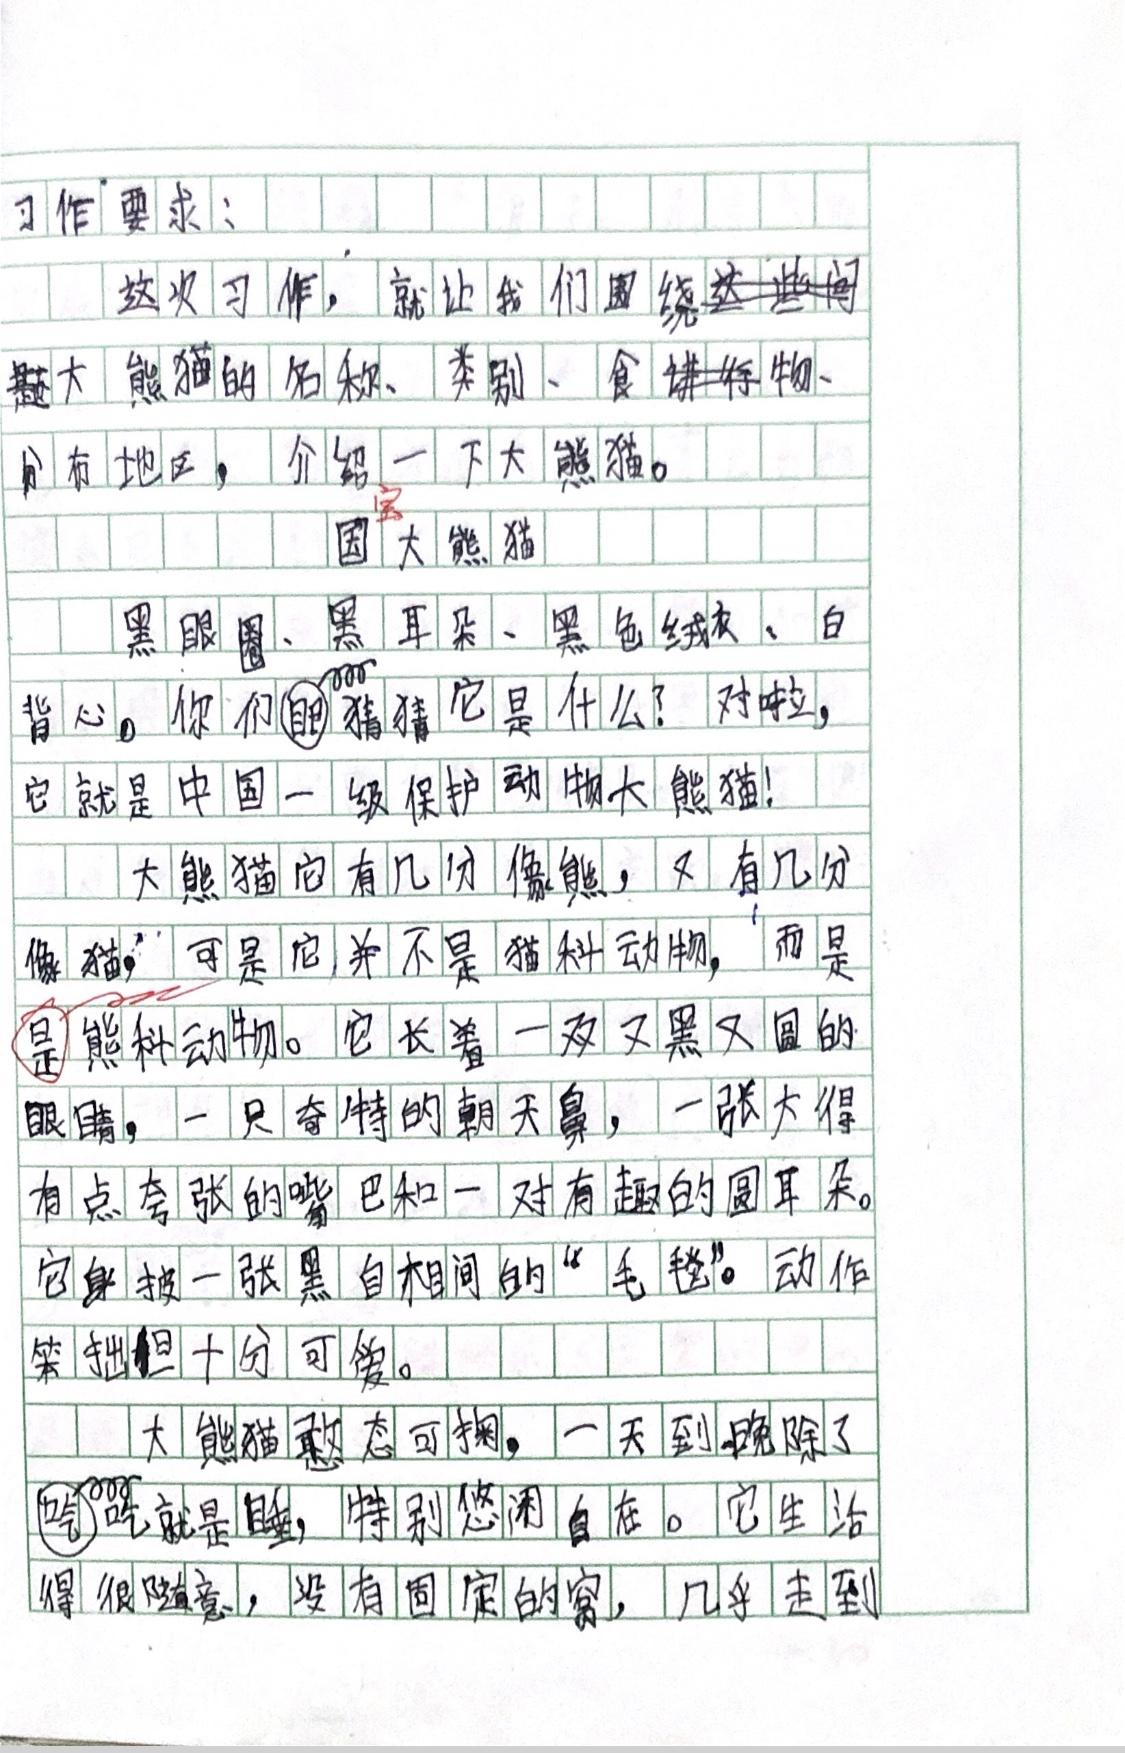 习作要求：
这次习作，就让我们围绕这些问
题大熊猫的名称、类别、食讲存物、
分布地区，介绍一下大熊猫。
宝
国大熊猫
黑眼圈、黑耳朵、黑色绒衣、白
背心。你们自己猜猜它是什么？对啦，
它就是中国一级保护动物大熊猫！
大熊猫它有几分像熊，又有几分
像猫，可是它并不是猫科动物，而是
是熊科动物。它长着一双又黑又圆的
眼睛，一只奇特的朝天鼻，一张大得
有点夸张的嘴巴和一对有趣的圆耳朵。
它身披一张黑白相间的“毛毯”。动作
笨拙但十分可爱。
大熊猫憨态可掬，一天到晚除了
吃吃就是睡，特别悠闲自在。它生活
得很随意，没有固定的窝，几乎走到